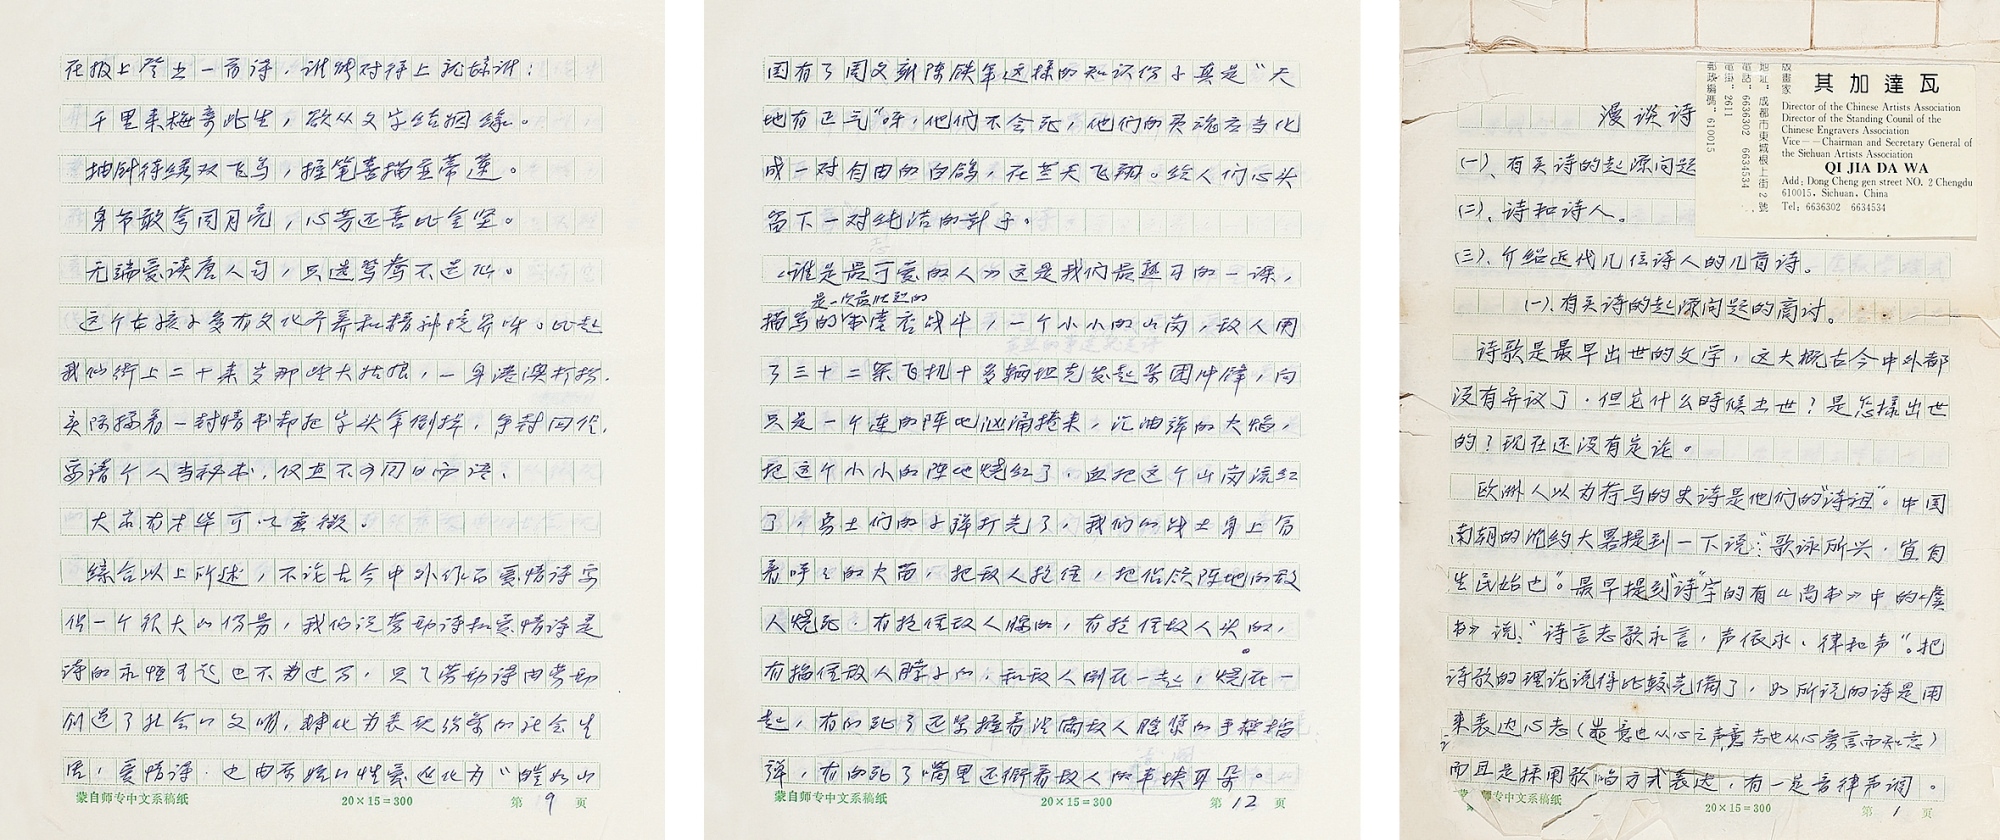 在报上登出一首诗，谁能对得上就嫁谁：
千里来梅寄此生，欲从文字结姻缘。
抽针待绣双飞鸟，握笔喜描并蒂莲。
身节敢夸同月亮，心芳还喜比金坚。
无端爱读唐人句，只选鸳鸯不选仙。
这个女孩子多有文化个养和精神境界呀。比起
我们街上二十来岁那些大姑娘，一身港澳打扮，
实际接着一封情书却把字头拿倒掉，争封回信，
要请个人当秘书，仅直不可同日而语，
大家有才华可以应徵。
综合以上所述，不论古今中外作品爱情诗写
供一个很大的份量，我们说劳动诗和爱情诗是
诗的永恒主题也不为过了，只了劳动诗由劳动
创造了社会的文明，转化为表现纷繁的社会生
活，爱情诗，也由原始的性爱进化为"皑如山
蒙自师专中文系稿纸 20×15=300 第9页
国有了周文雍陈铁军这样的知识份子真是"天
地有正气"呀，他们不会死，他们的灵魂应当化
成一对自由的白鸽，在兰天飞翔。给人们心头
留下一对纯洁的影子。
《谁是最可爱的人》这是我们最熟习的一课，
是一次最壮烈的
描写的书堂否战斗，一个小小的山岗，敌人用
了三十二架飞机十多辆坦克发起集团冲锋，向
只是一个连的阵地汹涌捲来，汇油弹的火焰，
把这个小小的阵地烧红了，血把这个山岗流红
了，勇士们的子弹打光了，我们的战士身上冒
着呼呼的火苗，把敌人抱住，把佔领阵地的敌
人烧死，有抱住敌人腰的，有抱住敌人头的，
有掐住敌人脖子的，和敌人倒在一起，烧在一
起，有的死了还紧握着沾满敌人脑浆的手榴
弹，有的死了嘴里还衔着敌人的半块耳朵。
蒙自师专中文系稿纸 20×15=300 第12页
漫谈诗
(一)、有关诗的起源问题
(二)、诗和诗人。
(三)、介绍近代几位诗人的几首诗。
(一)、有关诗的起源问题的商讨。
诗歌是最早出世的文字，这大概古今中外都
没有异议了，但它什么時候出世？是怎样出世
的？现在还没有定论。
欧洲人以为荷马的史诗是他们的"诗祖"。中国
南朝的沈约大略提到一下说："歌詠所兴，宜自
生民始也"。最早提到"诗"字的有《尚书》中的《虞
书》说："诗言志歌永言，声依永，律和声"。把
诗歌的理论说得比较完俻了，如所说的诗是用
来表达心志（意也从心之声意志也从心察言而知意）
而且是採用歌唱方式表达，有一定音律声调。
师专中文系稿纸 20×15=300 第1页
其加達瓦
版畫家
地址：成都市東城根上街2號
電話：6636302 6634534
電掛：2611
郵政編碼：610015
Director of the Chinese Artists Association
Director of the Standing Counil of the
Chinese Engravers Association
Vice——Chairman and Secretary General of
the Siehuan Artists Association
QI JIA DA WA
Add: Dong Cheng gen street NO. 2 Chengdu
610015, Sichuan, China
Tel: 6636302 6634534